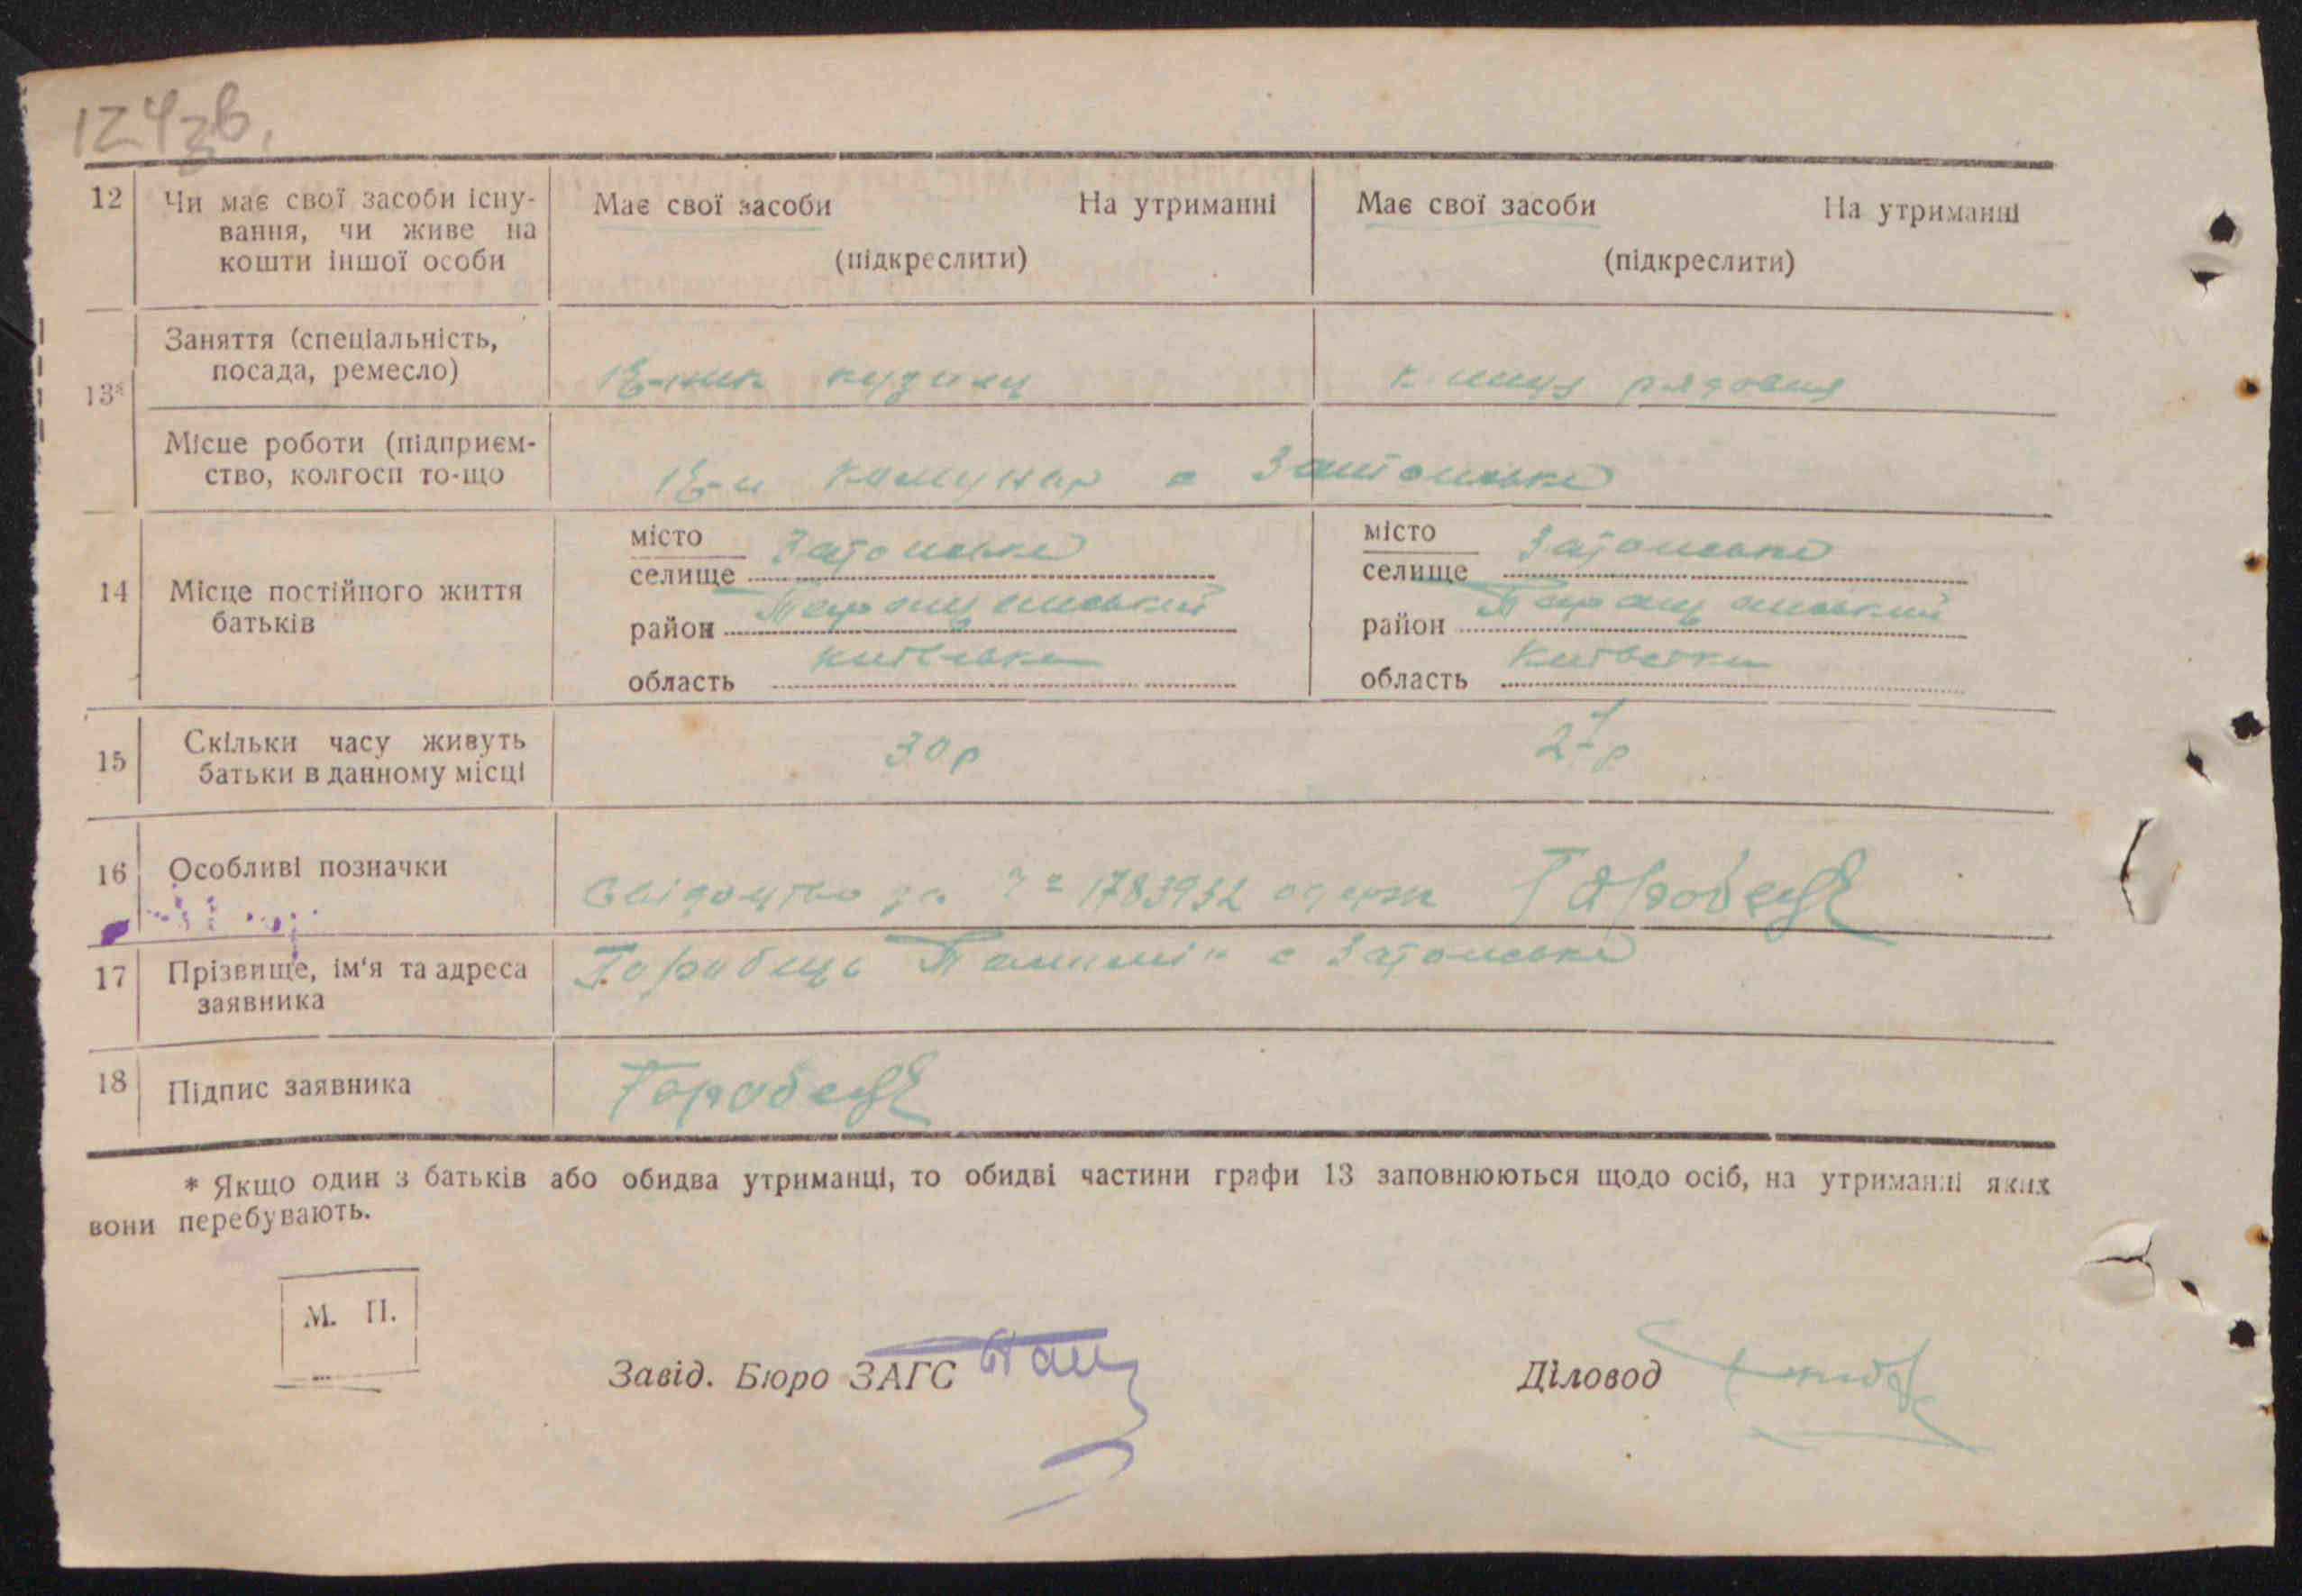 124зв.
12 Чи має свої засоби існу-
вання, чи живе на
кошти іншої особи
Має свої засоби На утриманні
(підкреслити)
Має свої засоби На утриманні
(підкреслити)
13* Заняття (спеціальність,
посада, ремесло)
рядова
Місце роботи (підприєм-
ство, колгосп то-що
Комунар с Затонське
14 Місце постійного життя
батьків
місто
селище Затонське
район Таращанський
область Київська
місто
селище Затонське
район Таращанський
область Київська
15 Скільки часу живуть
батьки в данному місці
30 р
27 р
16 Особливі позначки
Свідоцтво за № 1783932 одерж Горобець
17 Прізвище, ім‘я та адреса
заявника
Горобець с Затонське
18 Підпис заявника
Горобець
* Якщо один з батьків або обидва утриманці, то обидві частини графи 13 заповнюються щодо осіб, на утриманні яких
вони перебувають.
М. П.
Завід. Бюро ЗАГС
Діловод